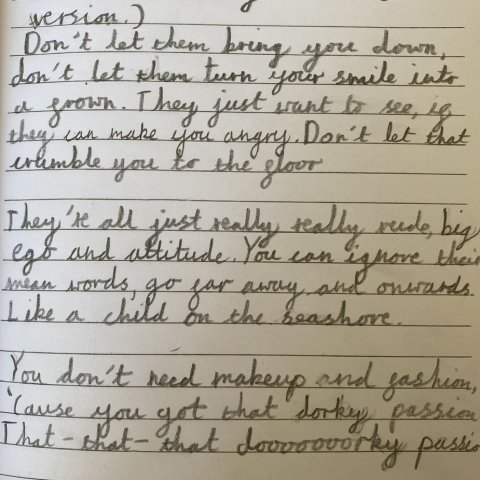 version.)
Don't let them bring you down,
don't let them turn your smile into
a frown. They just want to see, if
they can make you angry. Don't let that
crumble you to the floor
They're all just really really rude, big
ego and attitude. You can ignore their
mean words, go far away and onwards.
Like a child on the seashore.
You don't need makeup and fashion,
'cause you got that dorky passion
That-that-that dooooooorky passio